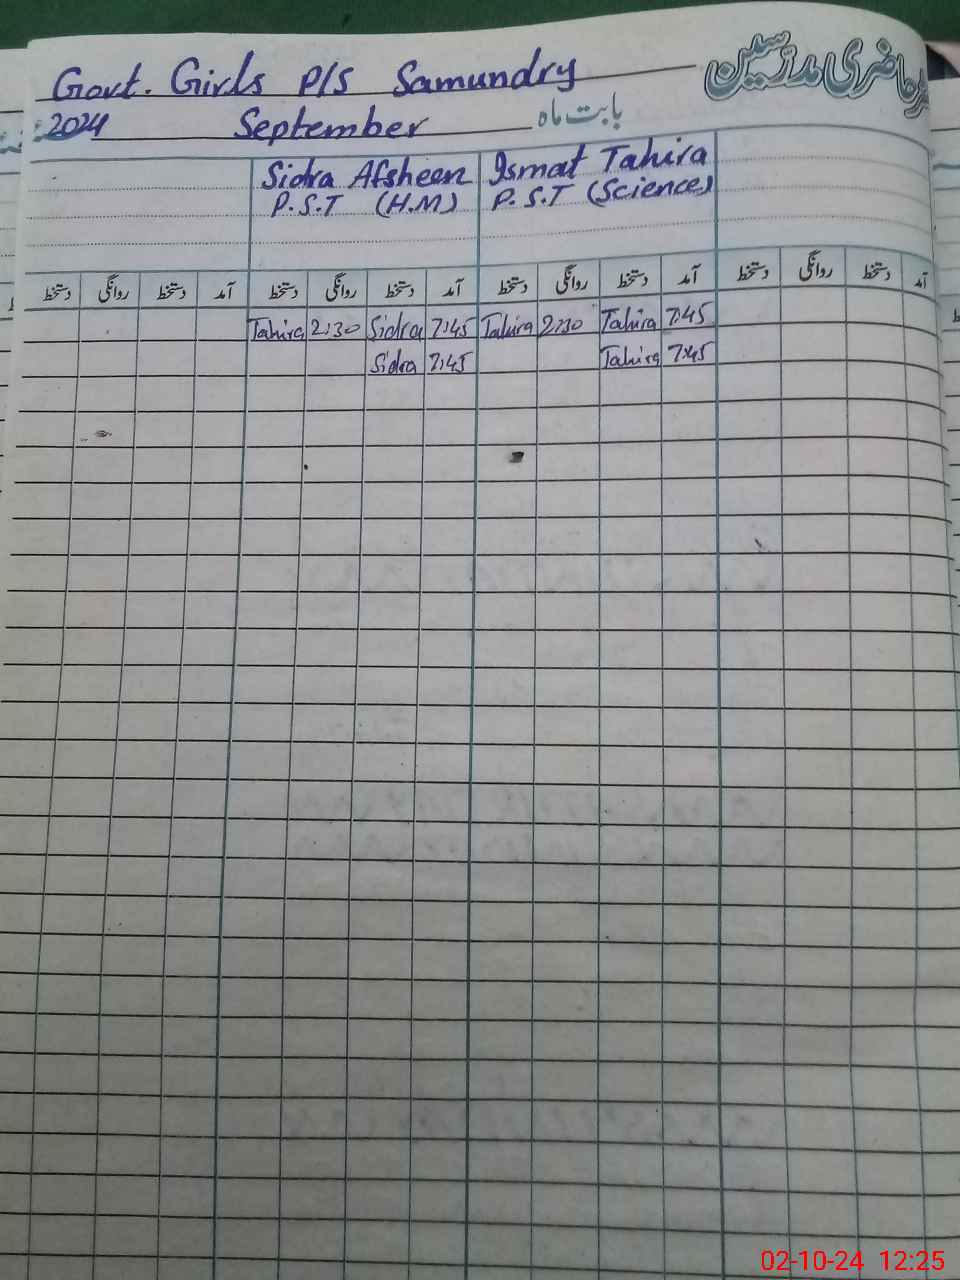 Govt. Girls P/S Samundry
رجسٹر حاضری مدرسین
2024 September بابت ماہ
Sidra Afsheen Ismat Tahira
P.S.T (H.M) P.S.T (Science)
آمد دستخط روانگی دستخط آمد دستخط روانگی دستخط آمد دستخط روانگی دستخط آمد دستخط روانگی دستخط
Tahira 2:30 Sidra 7:45 Tahira 2:30 Tahira 7:45
Sidra 7:45 Tahira 7:45
02-10-24 12:25